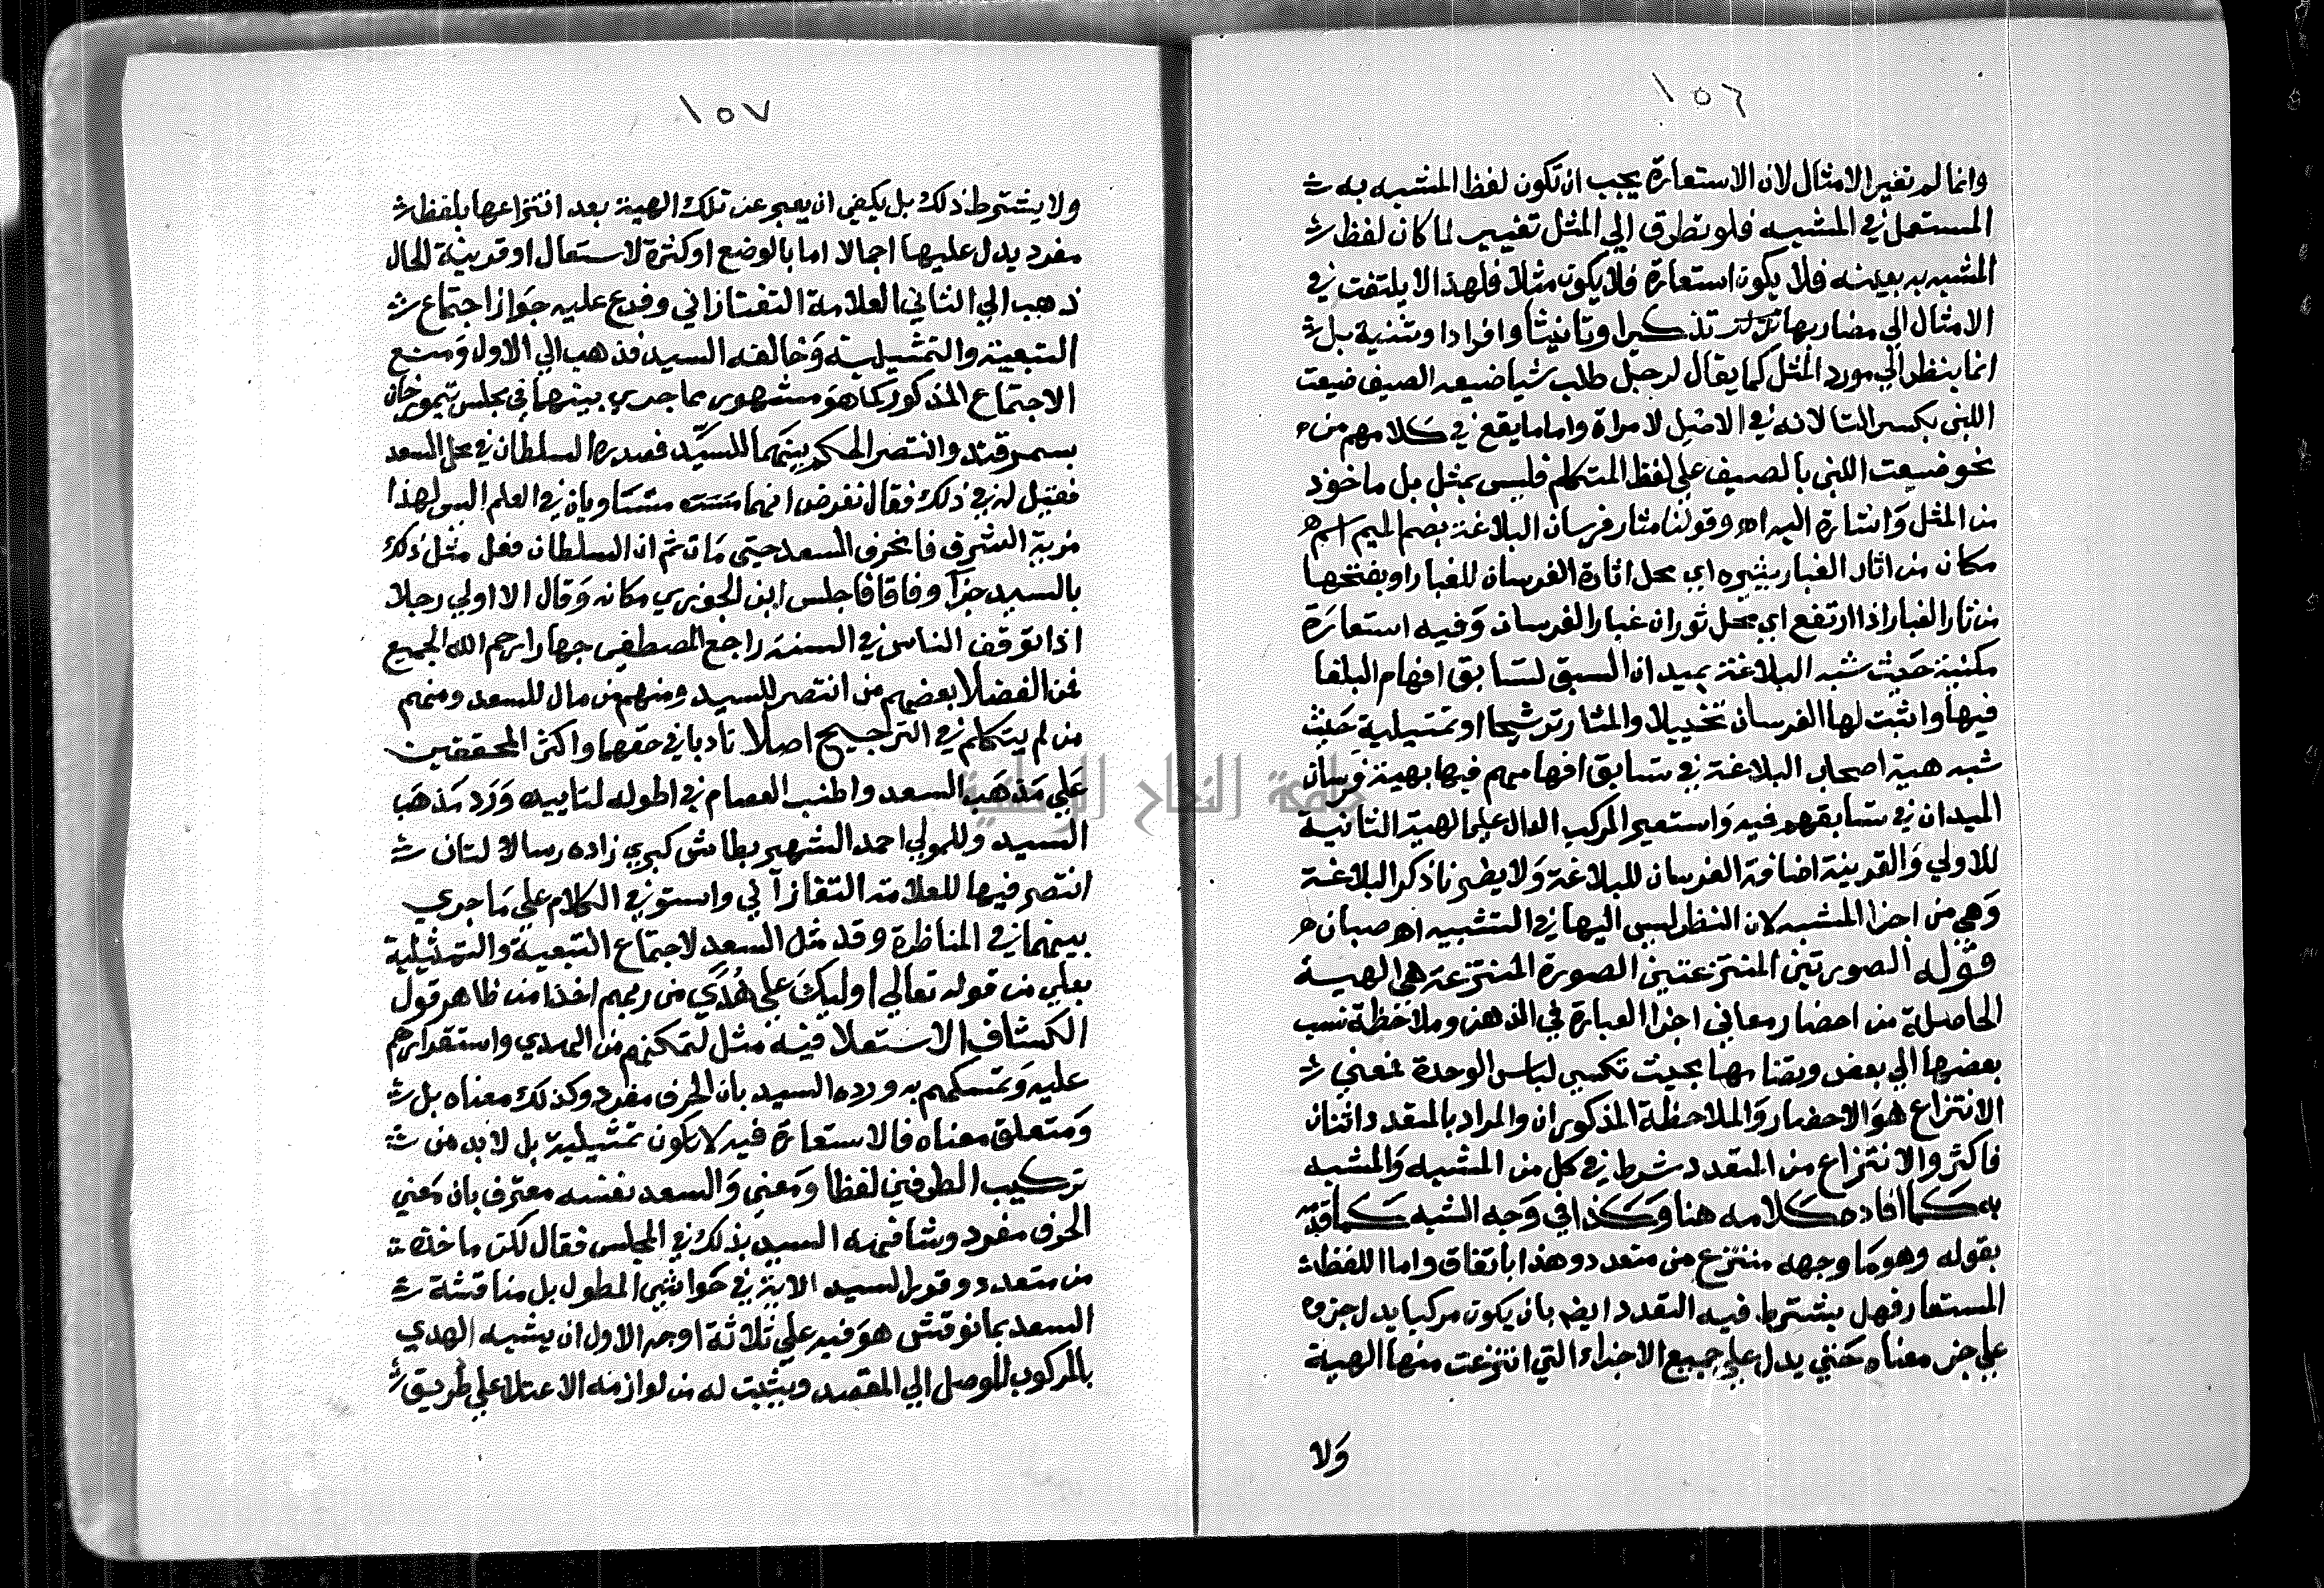 ١٥٦
وانما لم تغير الامثال لان الاستعارة يجب ان تكون لفظ المشبه به
المستعمل في المشبه فلو تطرق الي المثل تغيير لما كان لفظ
المشبه به بعينه فلا يكون استعارة فلا يكون مثلا فلهذا لا يلتفت في
الامثال الي مضاربها تذكيرا وتانيثا وافرادا وتثنية بل
انما ينظر الي مورد المثل كما يقال لرجل طلب شيا ضيعه الصيف ضيعت
اللبن بكسر التا لانه في الاصل لامراة واما ما يقع في كلامهم من
نحو ضيعت اللبن بالصيف علي لفظ المتكلم فليس بمثل بل ماخوذ
من المثل وَاشارة اليه اه وقولنا مثار فرسان البلاغة بضم الميم اسم
مكان من اثار الغبار يثيره اي محل اثارة الفرسان للغبار او بفتحها
من ثار الغبار اذا ارتفع اي محل ثوران غبار الفرسان وَفيه استعارَة
مكنية حَيث شبه البلاغة بميدان السبق لتسابق افهام البلغا
فيها واثبت لها الفرسان تخييلا والمثار ترشيحا او تمثيلية حَيث
شبه هيية اصحاب البلاغة في تسابق افهامهم فيها بهيية فرسان
الميدان في تسابقهم فيه وَاستعير المركب الدال علي الهيية الثانية
للاولي وَالقرينة اضافة الفرسان للبلاغة وَلا يضرنا ذكر البلاغة
وَهي من اجزا المشبه لان النظر ليس اليها في التشبيه اه صبان
قوله الصورتين المنتزعتين الصورة المنتزعة هي الهيية
الحاصلة من احضار معاني اجزا العبارة في الذهن وملاحَظة نسب
بعضها الي بعض وتضامها بحيث تكتسي لباس الوحدة فمعني
الانتزاع هوَ الاحضار وَالملاحظة المذكوران والمراد بالمتعدد اثنان
فاكثر والانتزاع من المتعدد شرط في كل من المشبه وَالمشبه
به كما افاده كلامه هنا وَكذا في وَجه الشبه كما قدمه
بقوله وهو مَا وجهه منتزع من متعدد وهذا باتفاق واما اللفظ
المستعار فهل يشترط فيه التعدد ايضم بان يكون مركبا يدل جزوه
علي جز معناه حَتي يدل علي جميع الاجزاء التي انتزعت منها الهيية
وَلا
١٥٧
ولا يشترط ذلك بل يكفي ان يعبر عن تلك الهيية بعد انتزاعها بلفظ
مفرد يدل عليها اجمالا اما بالوضع او كثرة لاستعمال او قرينة الحال
ذهب الي الثاني العلامة التفتازاني وفرع عليه جَواز اجتماع
التبعية والتمثيلية وَخالفه السيد فذهب الي الاول وَمنع
الاجتماع المذكور كما هوَ مشهور مما جري بينهما في مجلس تيمورخان
بسمرقند وانتصر الحكم بينهما للسيّد فصدره السلطان في محل السعد
فقيل له في ذلك فقال نفرض انهما متساويان في العلم اليس لهذا
مزية الشرف فانحرف السعد حيتي مَات ثم ان السلطان فعل مثل ذلك
بالسيد جزآ وفاقا فاجلس ابن الجزري مكانه وَقال الا اولي رجلا
اذا توقف الناس في السنة راجع المصطفي جهارا رحم الله الجميع
فمن الفضلا بعضهم من انتصر للسيد ومنهم من مال للسعد ومنهم
من لم يتكلم في الترجيح اصلا تادبا في حقهما واكثر المحققين
عَلي مَذهَب السعد واطنب العصام في اطوله لتاييده وَرَد مَذهَب
السيد وللمولي احمد الشهير بطاش كبري زاده رسالا لتان
انتصر فيها للعلامة التفازآني واستوفي الكلام علي مَا جري
بينهما في المناظرة وقد مثل السعد لاجتماع التبعية والتمثيلية
بعلي من قوله تعالي اوليك علي هُدًي من ربهم اخذا من ظاهر قول
الكشاف الاستعلا فيه مثل لتمكنهم من الهدي واستقرارهم
عليه وَتمسكهم به ورده السيد بان الحرف مفرد وكذلك معناه بل
وَمتعلق معناه فالاستعارة فيه لا تكون تمثيلية بل لابد من
تركيب الطرفين لفظا وَمعني وَالسعد نفسه معترف بان مَعني
الحرف مفرد وشافهه السيد بذلك في المجلس فقال لكن ماخذه
من متعدد وقول السيد الاية في حَواشي المطول بل مناقشة
السعد بما نوقش هوَ فيه علي ثلاثة اوجه الاول ان يشبه الهدي
بالمركوب الموصل الي المقصد ويثبت له من لوازمه الاعتلا علي طريق
جامعة النجاح الوطنية